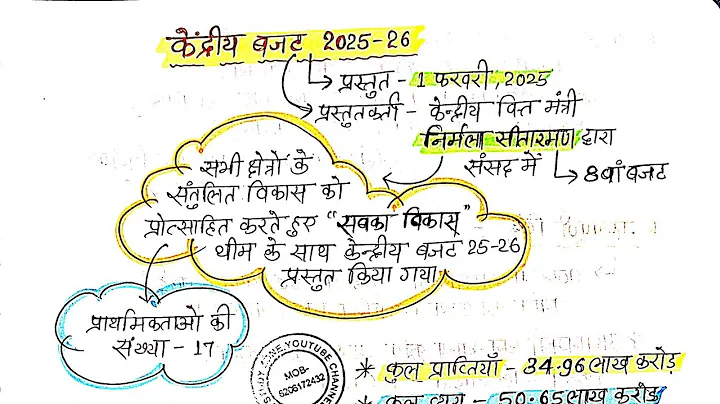 केंद्रीय बजट 2025-26
प्रस्तुत - 1 फरवरी, 2025
प्रस्तुतकर्ता - केन्द्रीय वित्त मंत्री
निर्मला सीतारमण द्वारा
संसद में
8वां बजट
सभी क्षेत्रों के
संतुलित विकास को
प्रोत्साहित करते हुए "सबका विकास"
थीम के साथ केन्द्रीय बजट 25-26
प्रस्तुत किया गया
प्राथमिकताओ की
संख्या - 17
STUDY ZONE YOUTUBE CHANNEL
MOB-
6206172432
* कुल प्राप्तियाँ - 34.96 लाख करोड़
* कुल व्यय - 50.65 लाख करोड़